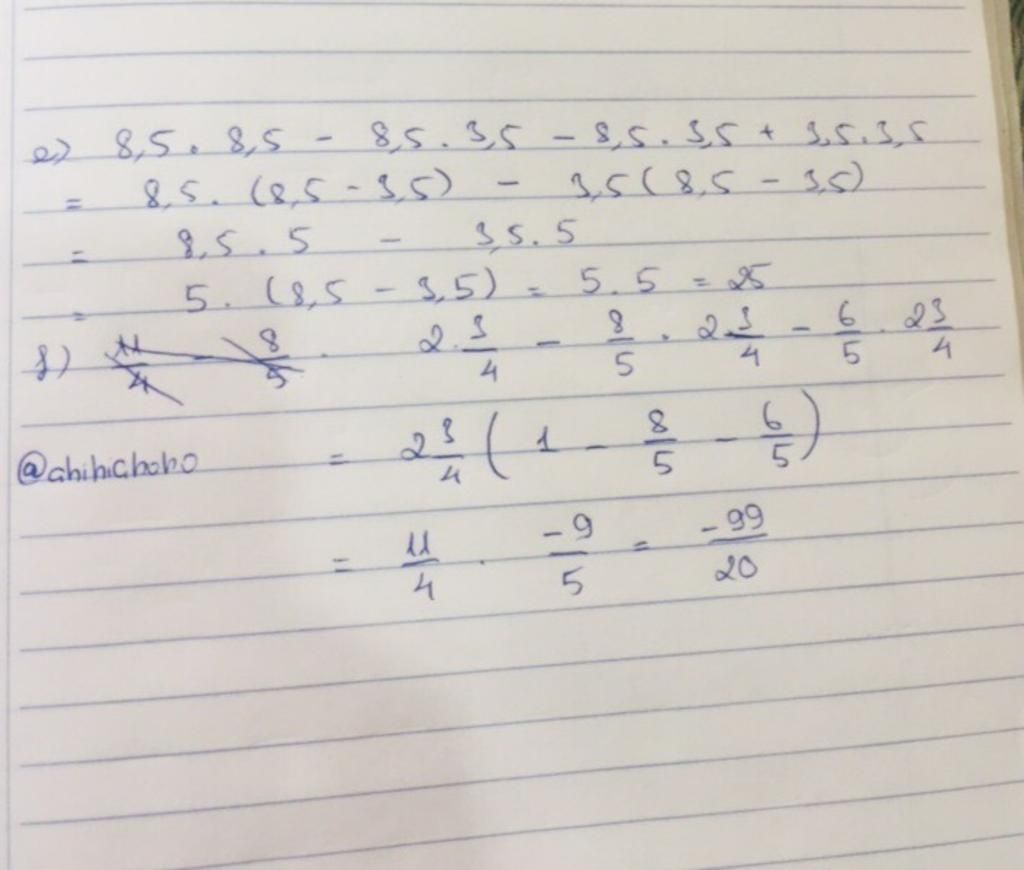 e) 8,5 . 8,5 - 8,5 . 3,5 - 8,5 . 3,5 + 3,5 . 3,5
= 8,5 . (8,5 - 3,5) - 3,5 (8,5 - 3,5)
= 8,5 . 5 - 3,5 . 5
= 5 . (8,5 - 3,5) = 5 . 5 = 25
f) 11/4 - 8/5 . 2 3/4 - 8/5 . 2 3/4 - 6/5 . 2 3/4
@chihichoho = 2 3/4 ( 1 - 8/5 - 6/5 )
= 11/4 . -9/5 = -99/20